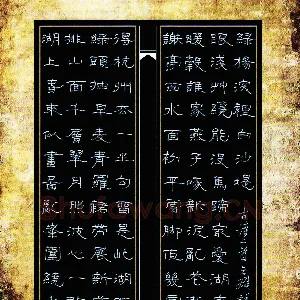 綠楊陰裏白沙堤
眼淺草才能沒馬蹄最愛湖東
暖樹誰家新燕啄春泥亂花
謝亭西水面初平雲腳低幾
得杭州去一半勾留是此湖
線頭抽早稻青羅裙帶展新
排山面千層翠月點波心一
湖上春來似畫圖亂峰圍繞